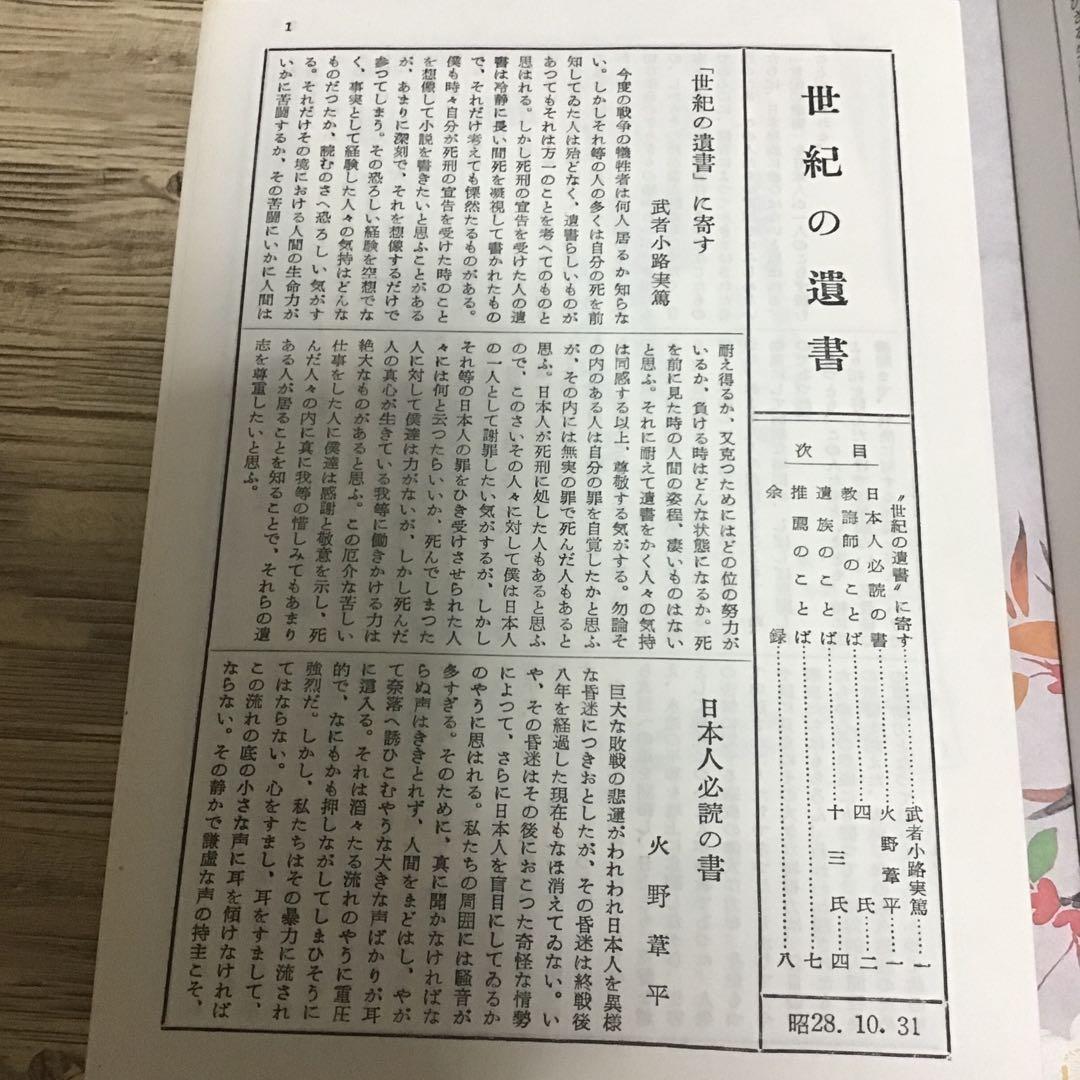 1
世紀の遺書
目次
〝世紀の遺書〟に寄す………武者小路実篤……一
日本人必読の書………火野葦平……一
教誨師のことば………四氏……二
遺族のことば………十三氏……四
推薦のことば………七
余録………八
昭28.10.31
「世紀の遺書」に寄す
武者小路実篤
今度の戦争の犠牲者は何人居るか知らな
い。しかしそれ等の人の多くは自分の死を前
知してゐた人は殆どなく、遺書らしいものが
あつてもそれは万一のことを考へてのものと
思はれる。しかし死刑の宣告を受けた人の遺
書は冷静に長い間死を凝視して書かれたもの
で、それだけ考えても慄然たるものがある。
僕も時々自分が死刑の宣告を受けた時のこと
を想像して小説を書きたいと思ふことがある
が、あまりに深刻で、それを想像するだけで
参つてしまう。その恐ろしい経験を空想でな
く、事実として経験した人々の気持はどんな
ものだつたか、読むのさへ恐ろしい気がす
る。それだけその境における人間の生命力が
いかに苦闘するか、その苦闘にいかに人間は
耐え得るか、又克つためにはどの位の努力が
いるか、負ける時はどんな状態になるか。死
を前に見た時の人間の姿程、凄いものはない
と思ふ。それに耐えて遺書をかく人々の気持
は同感する以上、尊敬する気がする。勿論そ
の内のある人は自分の罪を自覚したかと思ふ
が、その内には無実の罪で死んだ人もあると
思ふ。日本人が死刑に処した人もあると思ふ
ので、このさいその人々に対して僕は日本人
の一人として謝罪したい気がするが、しかし
それ等の日本人の罪をひき受けさせられた人
々には何と云つたらいいか、死んでしまつた
人に対して僕達は力がないが、しかし死んだ
人の真心が生きている我等に働きかける力は
絶大なものがあると思ふ。この厄介な苦しい
仕事をした人に僕達は感謝と敬意を示し、死
んだ人々の内に真に我等の惜しみてもあまり
ある人が居ることを知ることで、それらの遺
志を尊重したいと思ふ。
日本人必読の書
火野葦平
巨大な敗戦の悲運がわれわれ日本人を異様
な昏迷につきおとしたが、その昏迷は終戦後
八年を経過した現在もなほ消えてゐない。い
や、その昏迷はその後におこつた奇怪な情勢
によつて、さらに日本人を盲目にしてゐるか
のやうに思はれる。私たちの周囲には騒音が
多すぎる。そのために、真に聞かなければな
らぬ声はききとれず、人間をまどはし、やが
て奈落へ誘ひこむやうな大きな声ばかりが耳
に這入る。それは滔々たる流れのやうに重圧
的で、なにもかも押しながしてしまひそうに
強烈だ。しかし、私たちはその暴力に流され
てはならない。心をすまし、耳をすまして、
この流れの底の小さな声に耳を傾けなければ
ならない。その静かで謙虚な声の持主こそ、